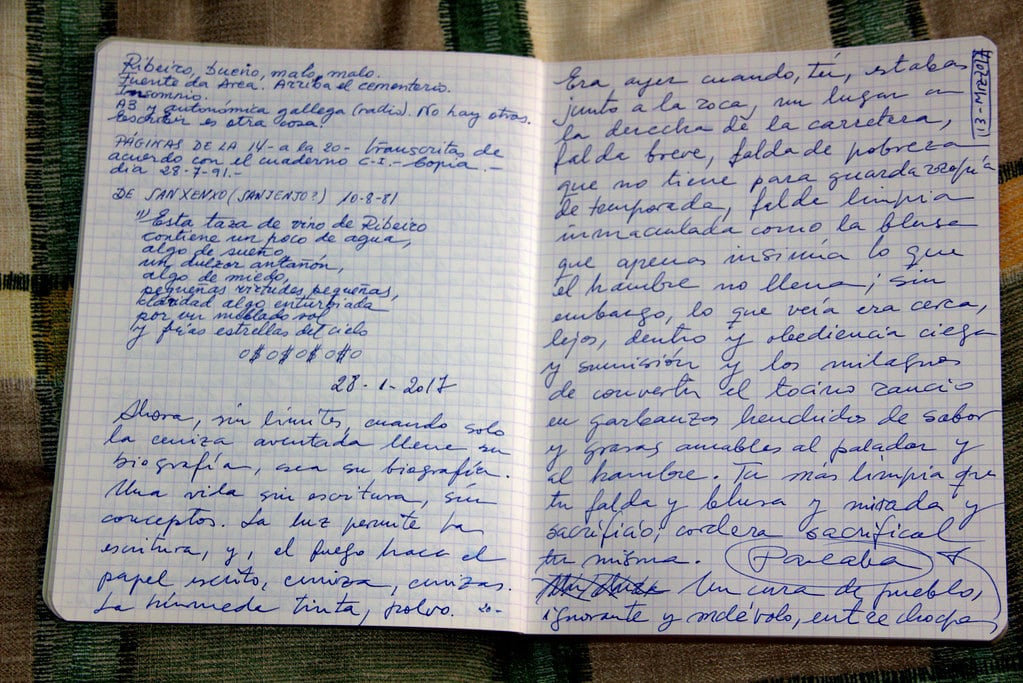 Ribeiro, bueno, malo, malo.
Fuente da Area. Arriba el cementerio.
Insomnio.
A3 y autonómica gallega (radio). No hay otras.
Escribir es otra cosa.
PÁGINAS DE LA 14- a la 20- transcritas de
acuerdo con el cuaderno C-I.- Copia.-
día 28-7-91.-
DE SANXENXO (SANJENJO?) 10-8-81
1) Esta taza de vino de Ribeiro
contiene un poco de agua,
algo de sueño,
un dulzor antañón,
algo de miedo,
pequeñas virtudes pequeñas,
claridad algo enturbiada
por un nublado sol
y frías estrellas del cielo
0$0$0$0$0
28-1-2017
Ahora, sin límites, cuando solo
la ceniza aventada llene su
biografía, sea su biografía.
Una vida sin escritura, sin
conceptos. La luz permite la
escritura, y, el fuego hace el
papel escrito, ceniza, cenizas.
La húmeda tinta, polvo. 20-
Era ayer cuando, tú, estabas
junto a la roca, un lugar a
la derecha de la carretera,
falda breve, falda de pobreza
que no tiene para guardarropía
de temporada, falda limpia
inmaculada como la blusa
que apenas insinúa lo que
el hambre no llena; sin
embargo, lo que veía era cerca,
lejos, dentro y obediencia ciega
y sumisión y los milagros
de convertir el tocino rancio
en garbanzos henchidos de sabor
y grasas amables al paladar y
al hambre. Tu más limpia que
tu falda y blusa y mirada y
sacrificio, cordera sacrifical
tu misma. Paraba
Un cura de pueblo,
ignorante y malévolo, entre chopos